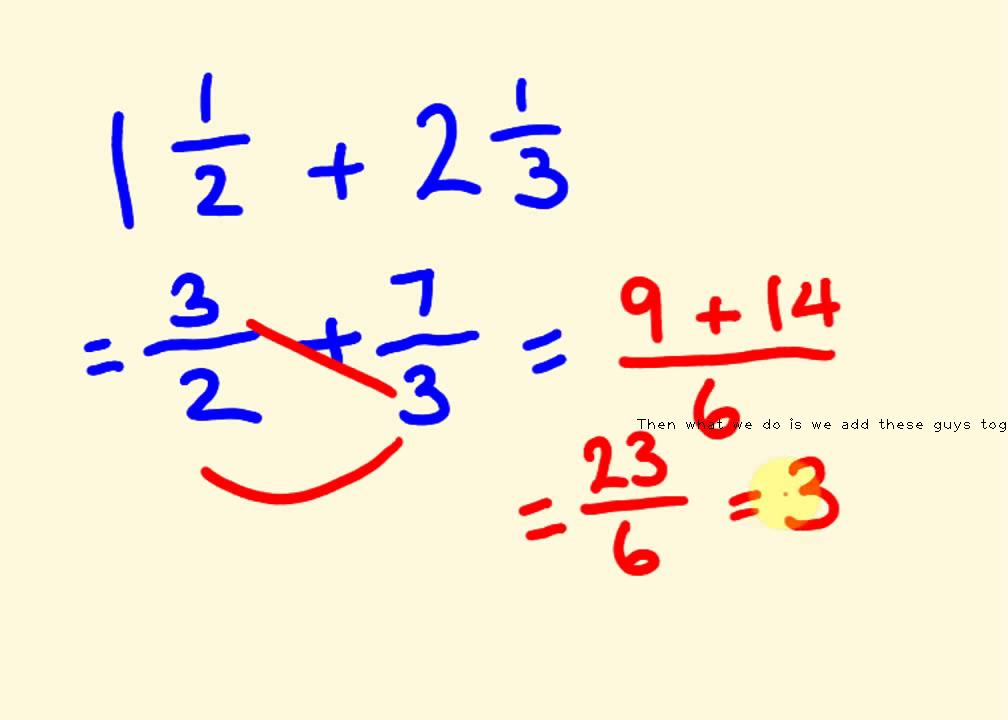 1 1/2 + 2 1/3
= 3/2 + 7/3 = 9 + 14/6
Then what we do is we add these guys tog
= 23/6 = 3